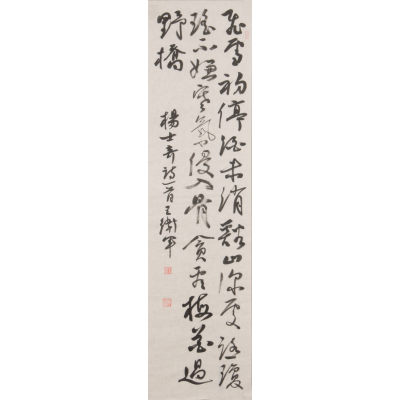 飛雪初停酒未消谿山深處踏瓊
瑤不嫌寒氣侵入骨貪看梅花過
野橋
楊士奇詩一首王衛軍